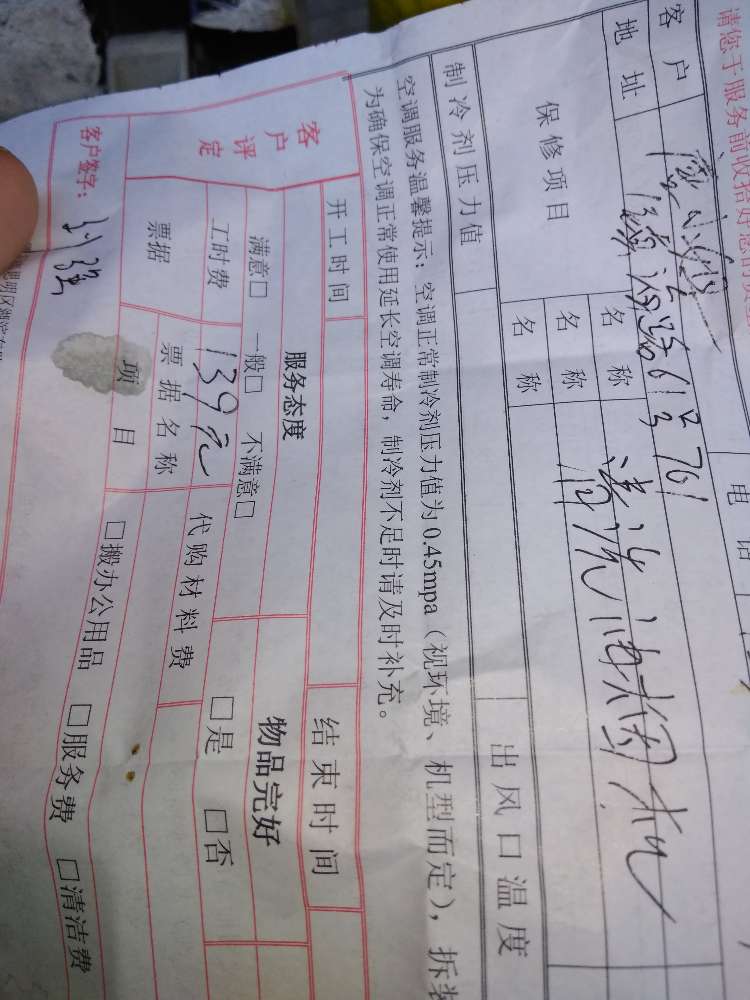 请您于服务前收拾好您的
客户
电话
地址 61号701
保修项目 名称 清洗油烟机
名称
名称
制冷剂压力值 出风口温度
空调服务温馨提示：空调正常制冷剂压力值为0.45mpa（视环境、机型而定），拆装
为确保空调正常使用延长空调寿命，制冷剂不足时请及时补充。
开工时间 结束时间
客户评定 服务态度 物品完好
满意□ 一般□ 不满意□ □是 □否
工时费 139元 代购材料费
票据 票据名称
项目 □搬办公用品 □服务费 □清洁费
客户签字：刘强